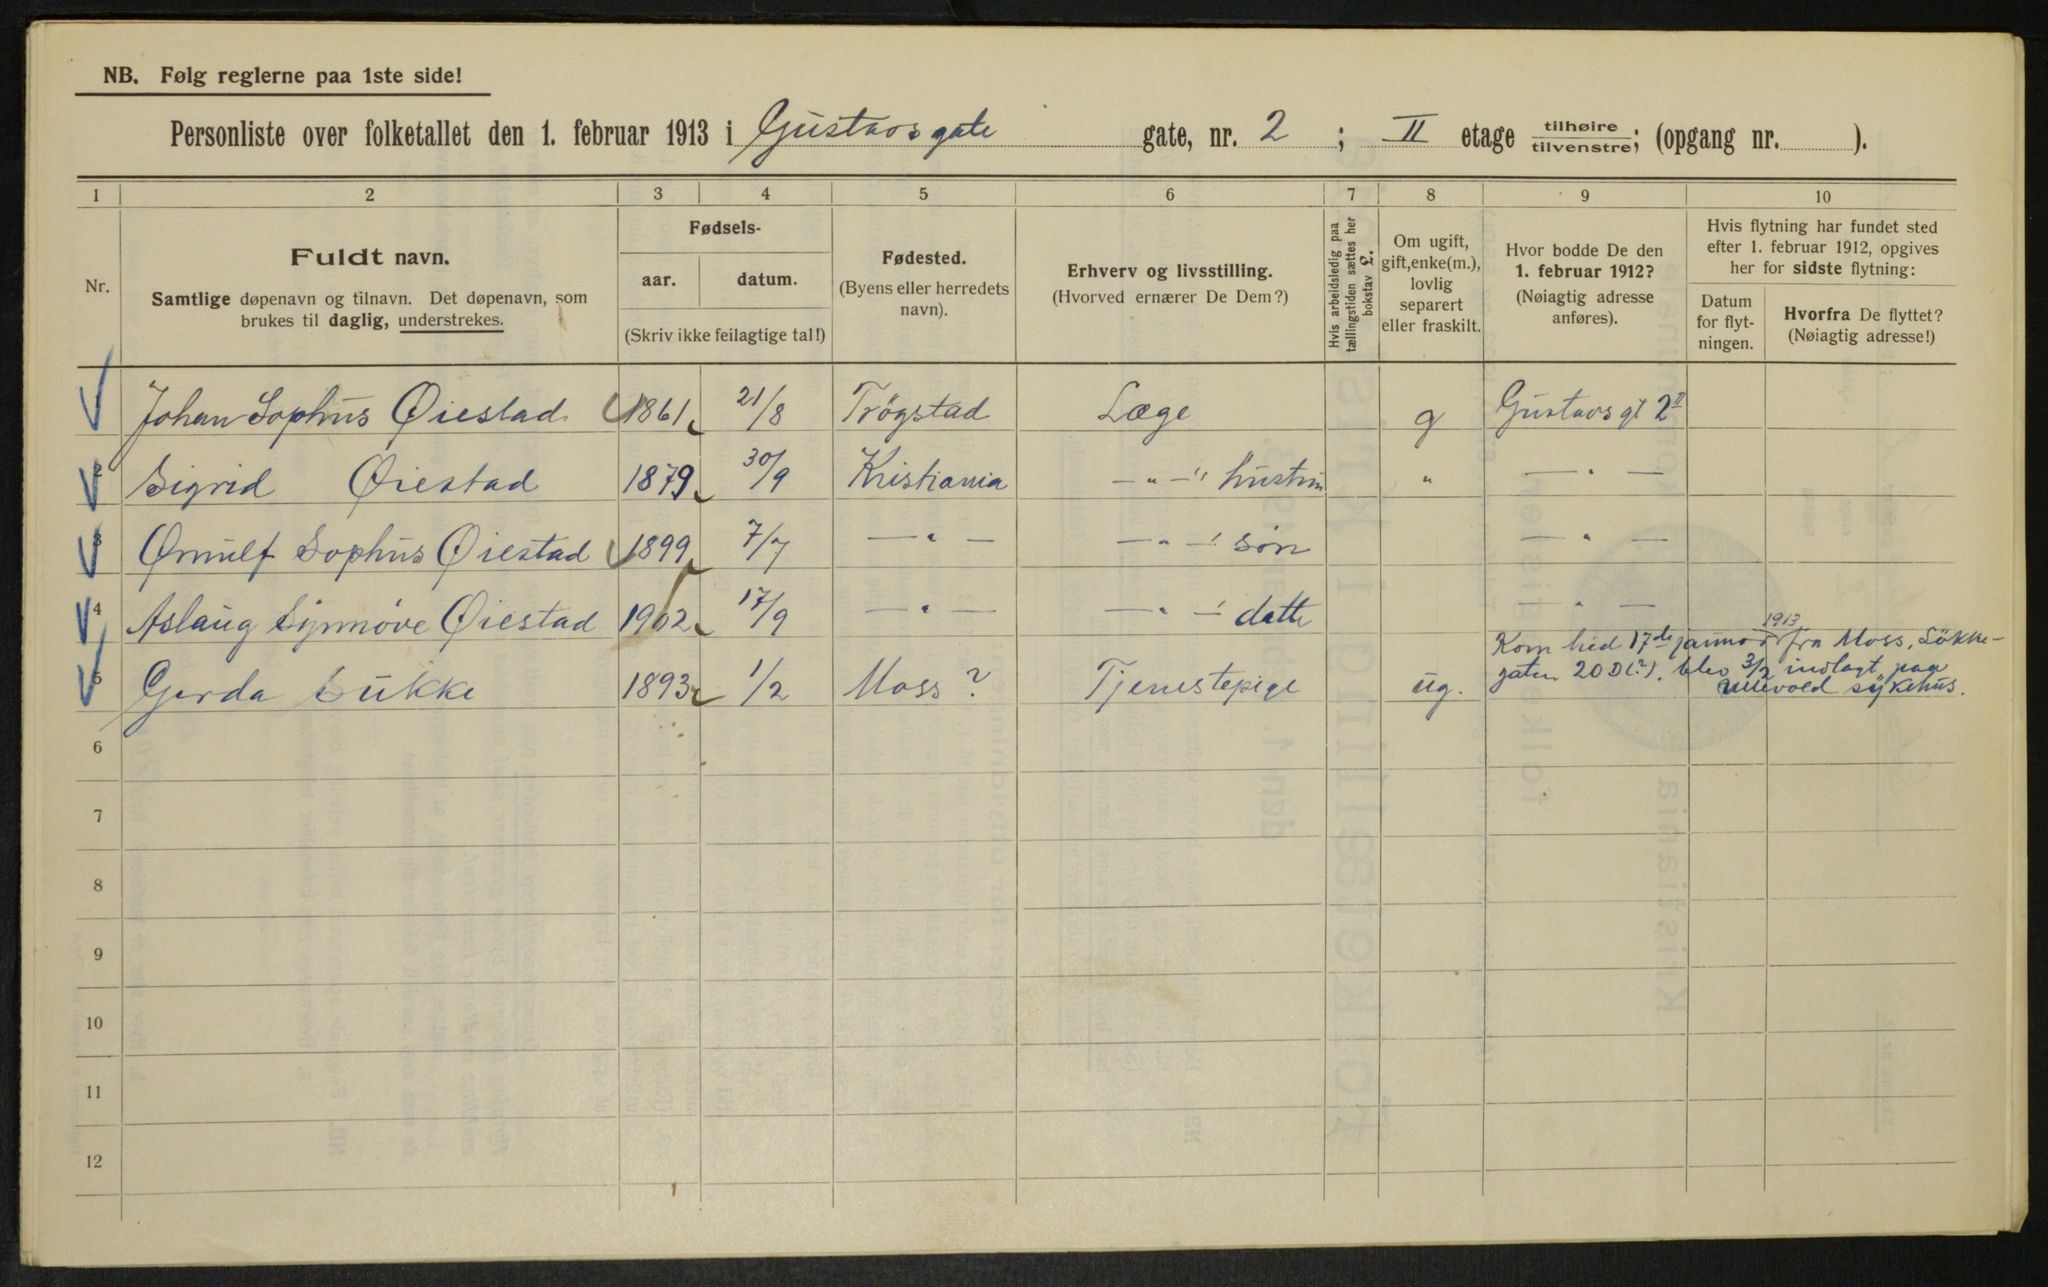 NB. Følg reglerne paa 1ste side!
Personliste over folketallet den 1. februar 1913 i Gustavsgate gate, nr. 2 ; II etage tilhøire tilvenstre; (opgang nr. ).
1 2 3 4 5 6 7 8 9 10
Nr.
Fuldt navn.
Samtlige døpenavn og tilnavn. Det døpenavn, som
brukes til daglig, understrekes.
Fødsels-
aar. datum.
(Skriv ikke feilagtige tal!)
Fødested.
(Byens eller herredets
navn).
Erhverv og livsstilling.
(Hvorved ernærer De Dem?)
Hvis arbeidsledig paa
tællingstiden sættes her
bokstav L.
Om ugift,
gift, enke(m.),
lovlig
separert
eller fraskilt.
Hvor bodde De den
1. februar 1912?
(Nøiagtig adresse
anføres).
Hvis flytning har fundet sted
efter 1. februar 1912, opgives
her for sidste flytning:
Datum
for flyt-
ningen.
Hvorfra De flyttet?
(Nøiagtig adresse!)
1 Johan Sophus Øiestad 1861 21/8 Trøgstad Læge g Gustavs gt 2 II
2 Sigrid Øiestad 1879 30/9 Kristiania — " — " hustru " — " —
3 Ørnulf Sophus Øiestad 1899 7/7 — " — — " — ' søn — " —
4 Aslaug Synnøve Øiestad 1902 17/9 — " — — " — ' datter — " —
5 Gerda Lukke 1893 1/2 Moss? Tjenestepige ug.
Kom hid 17de januar 1913 fra Moss, Løkke-
gaten 20 D(?), blev 3/2 indlagt paa
Ullevold sykehus.
6
7
8
9
10
11
12